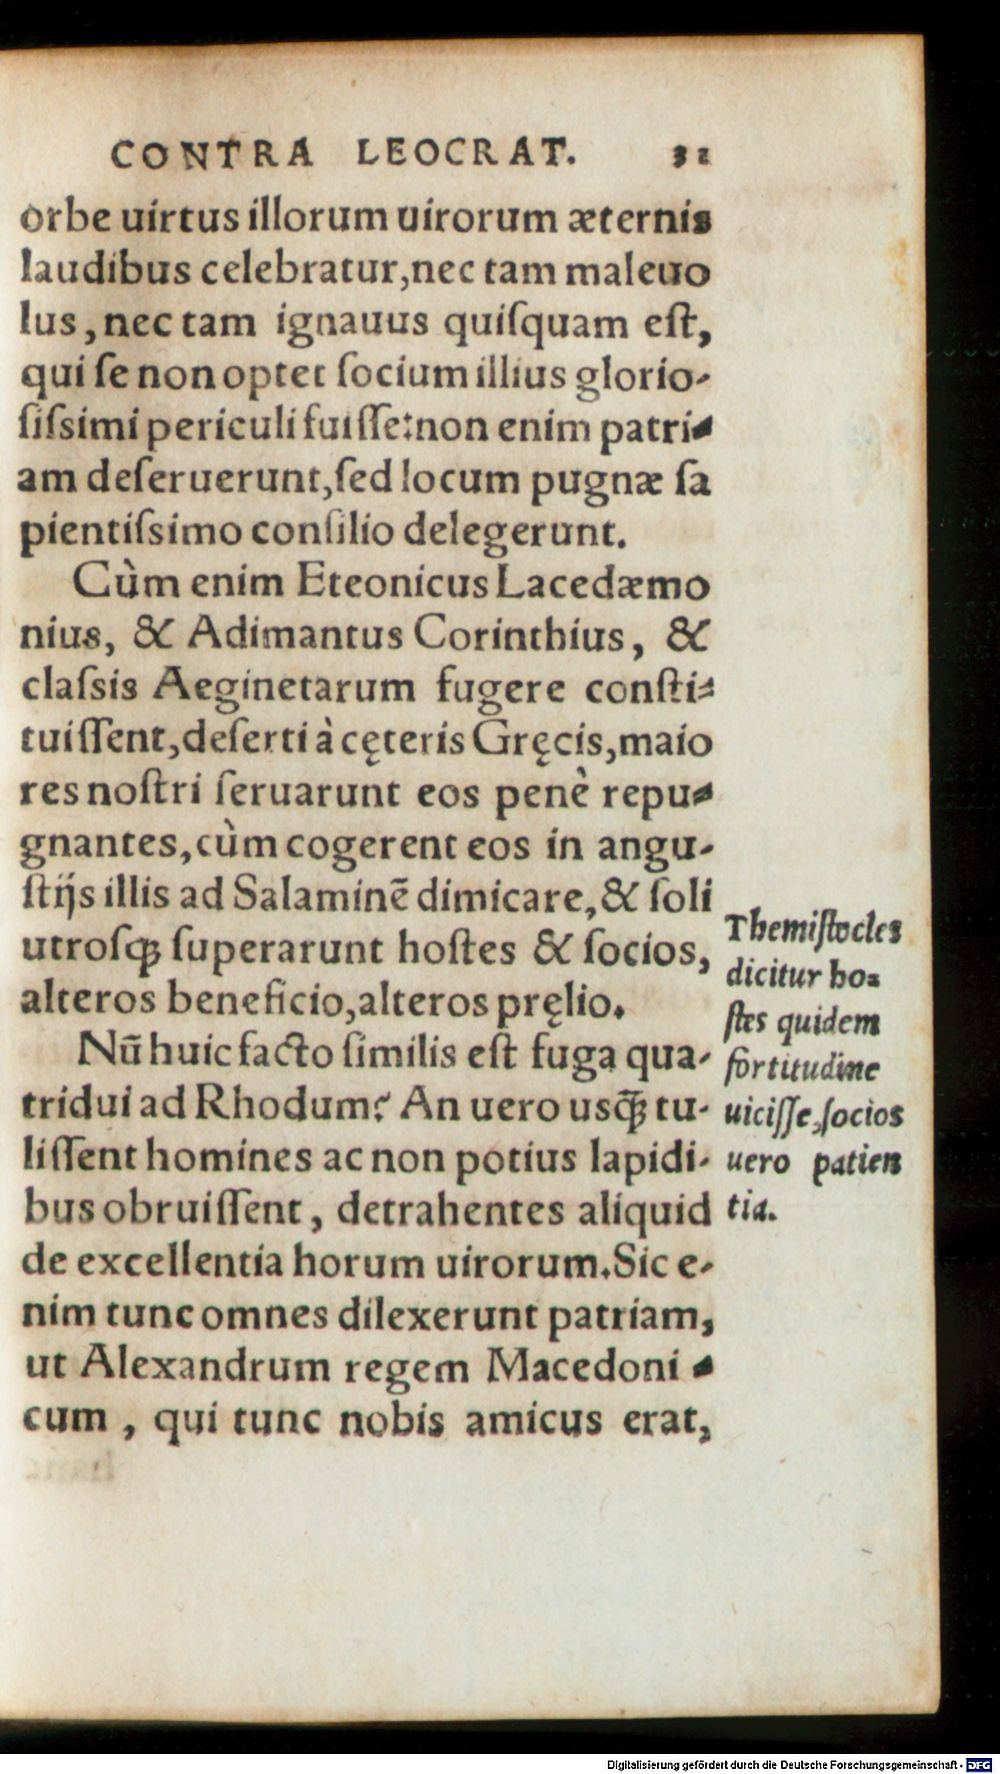 CONTRA LEOCRAT. 31
orbe uirtus illorum uirorum æternis
laudibus celebratur, nec tam maleuo
lus, nec tam ignauus quiſquam eſt,
qui ſe non optet ſocium illius glorio-
ſiſsimi periculi fuiſſe: non enim patri-
am deſeruerunt, ſed locum pugnæ ſa
pientiſsimo conſilio delegerunt.
Cùm enim Eteonicus Lacedæmo
nius, & Adimantus Corinthius, &
claſsis Aeginetarum fugere conſti-
tuiſſent, deſerti à cęteris Gręcis, maio
res noſtri ſeruarunt eos penè repu-
gnantes, cùm cogerent eos in angu-
ſtijs illis ad Salaminẽ dimicare, & ſoli
utroſq́; ſuperarunt hoſtes & ſocios,
alteros beneficio, alteros pręlio.
Nũ huic facto ſimilis eſt fuga qua-
tridui ad Rhodum? An uero uſq́; tu-
liſſent homines ac non potius lapidi-
bus obruiſſent, detrahentes aliquid
de excellentia horum uirorum. Sic e-
nim tunc omnes dilexerunt patriam,
ut Alexandrum regem Macedoni-
cum, qui tunc nobis amicus erat,
Themiſtocles
dicitur ho-
ſtes quidem
fortitudine
uiciſſe, ſocios
uero patien
tia.
Digitalisierung gefördert durch die Deutsche Forschungsgemeinschaft - DFG